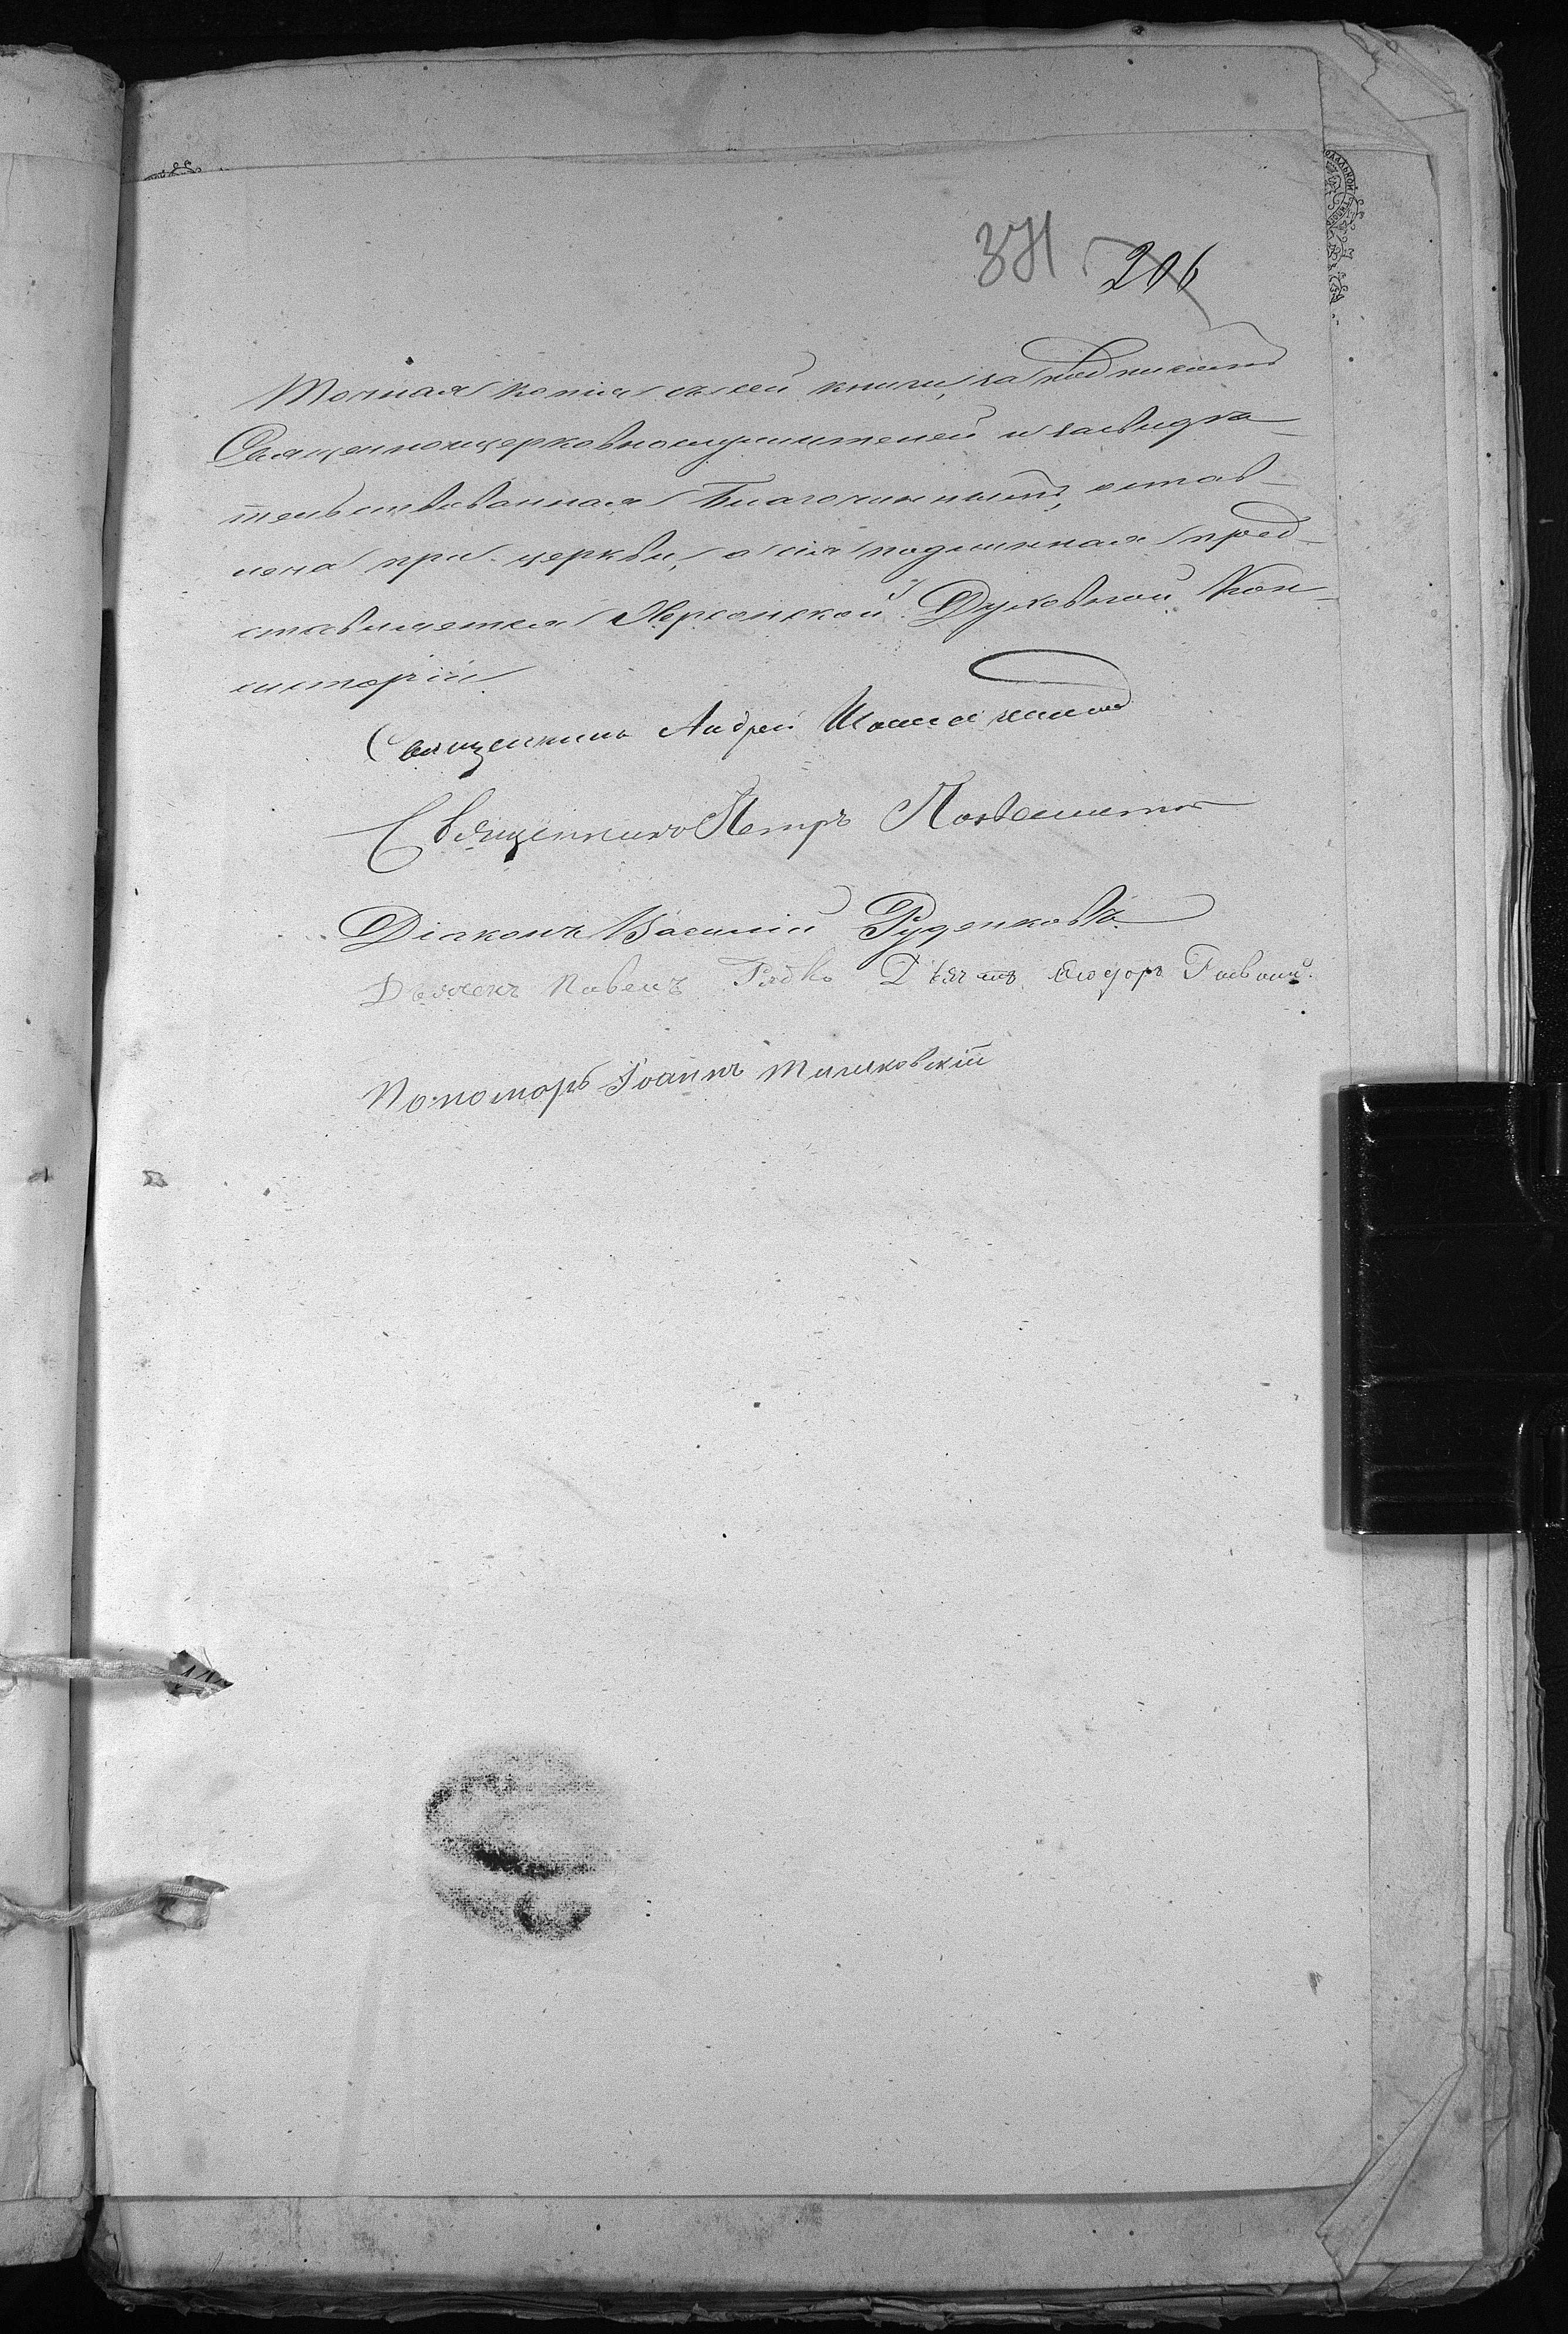 371 206
Точная копія съ сей книги, за подписомъ
Священноцерковнослужителей и засвидѣ-
тельствованная Благочиннымъ, остав-
лена при церкви, а сія подлинная пред-
ставляется Херсонской Духовной Кон-
систоріи
Священникъ Андрей
Священникъ Петръ
Діаконъ Василій Руденковъ.
Дьячекъ Павелъ Гядко Дьячекъ Ѳеодоръ
Пономарь Іоаннъ Тишковскій